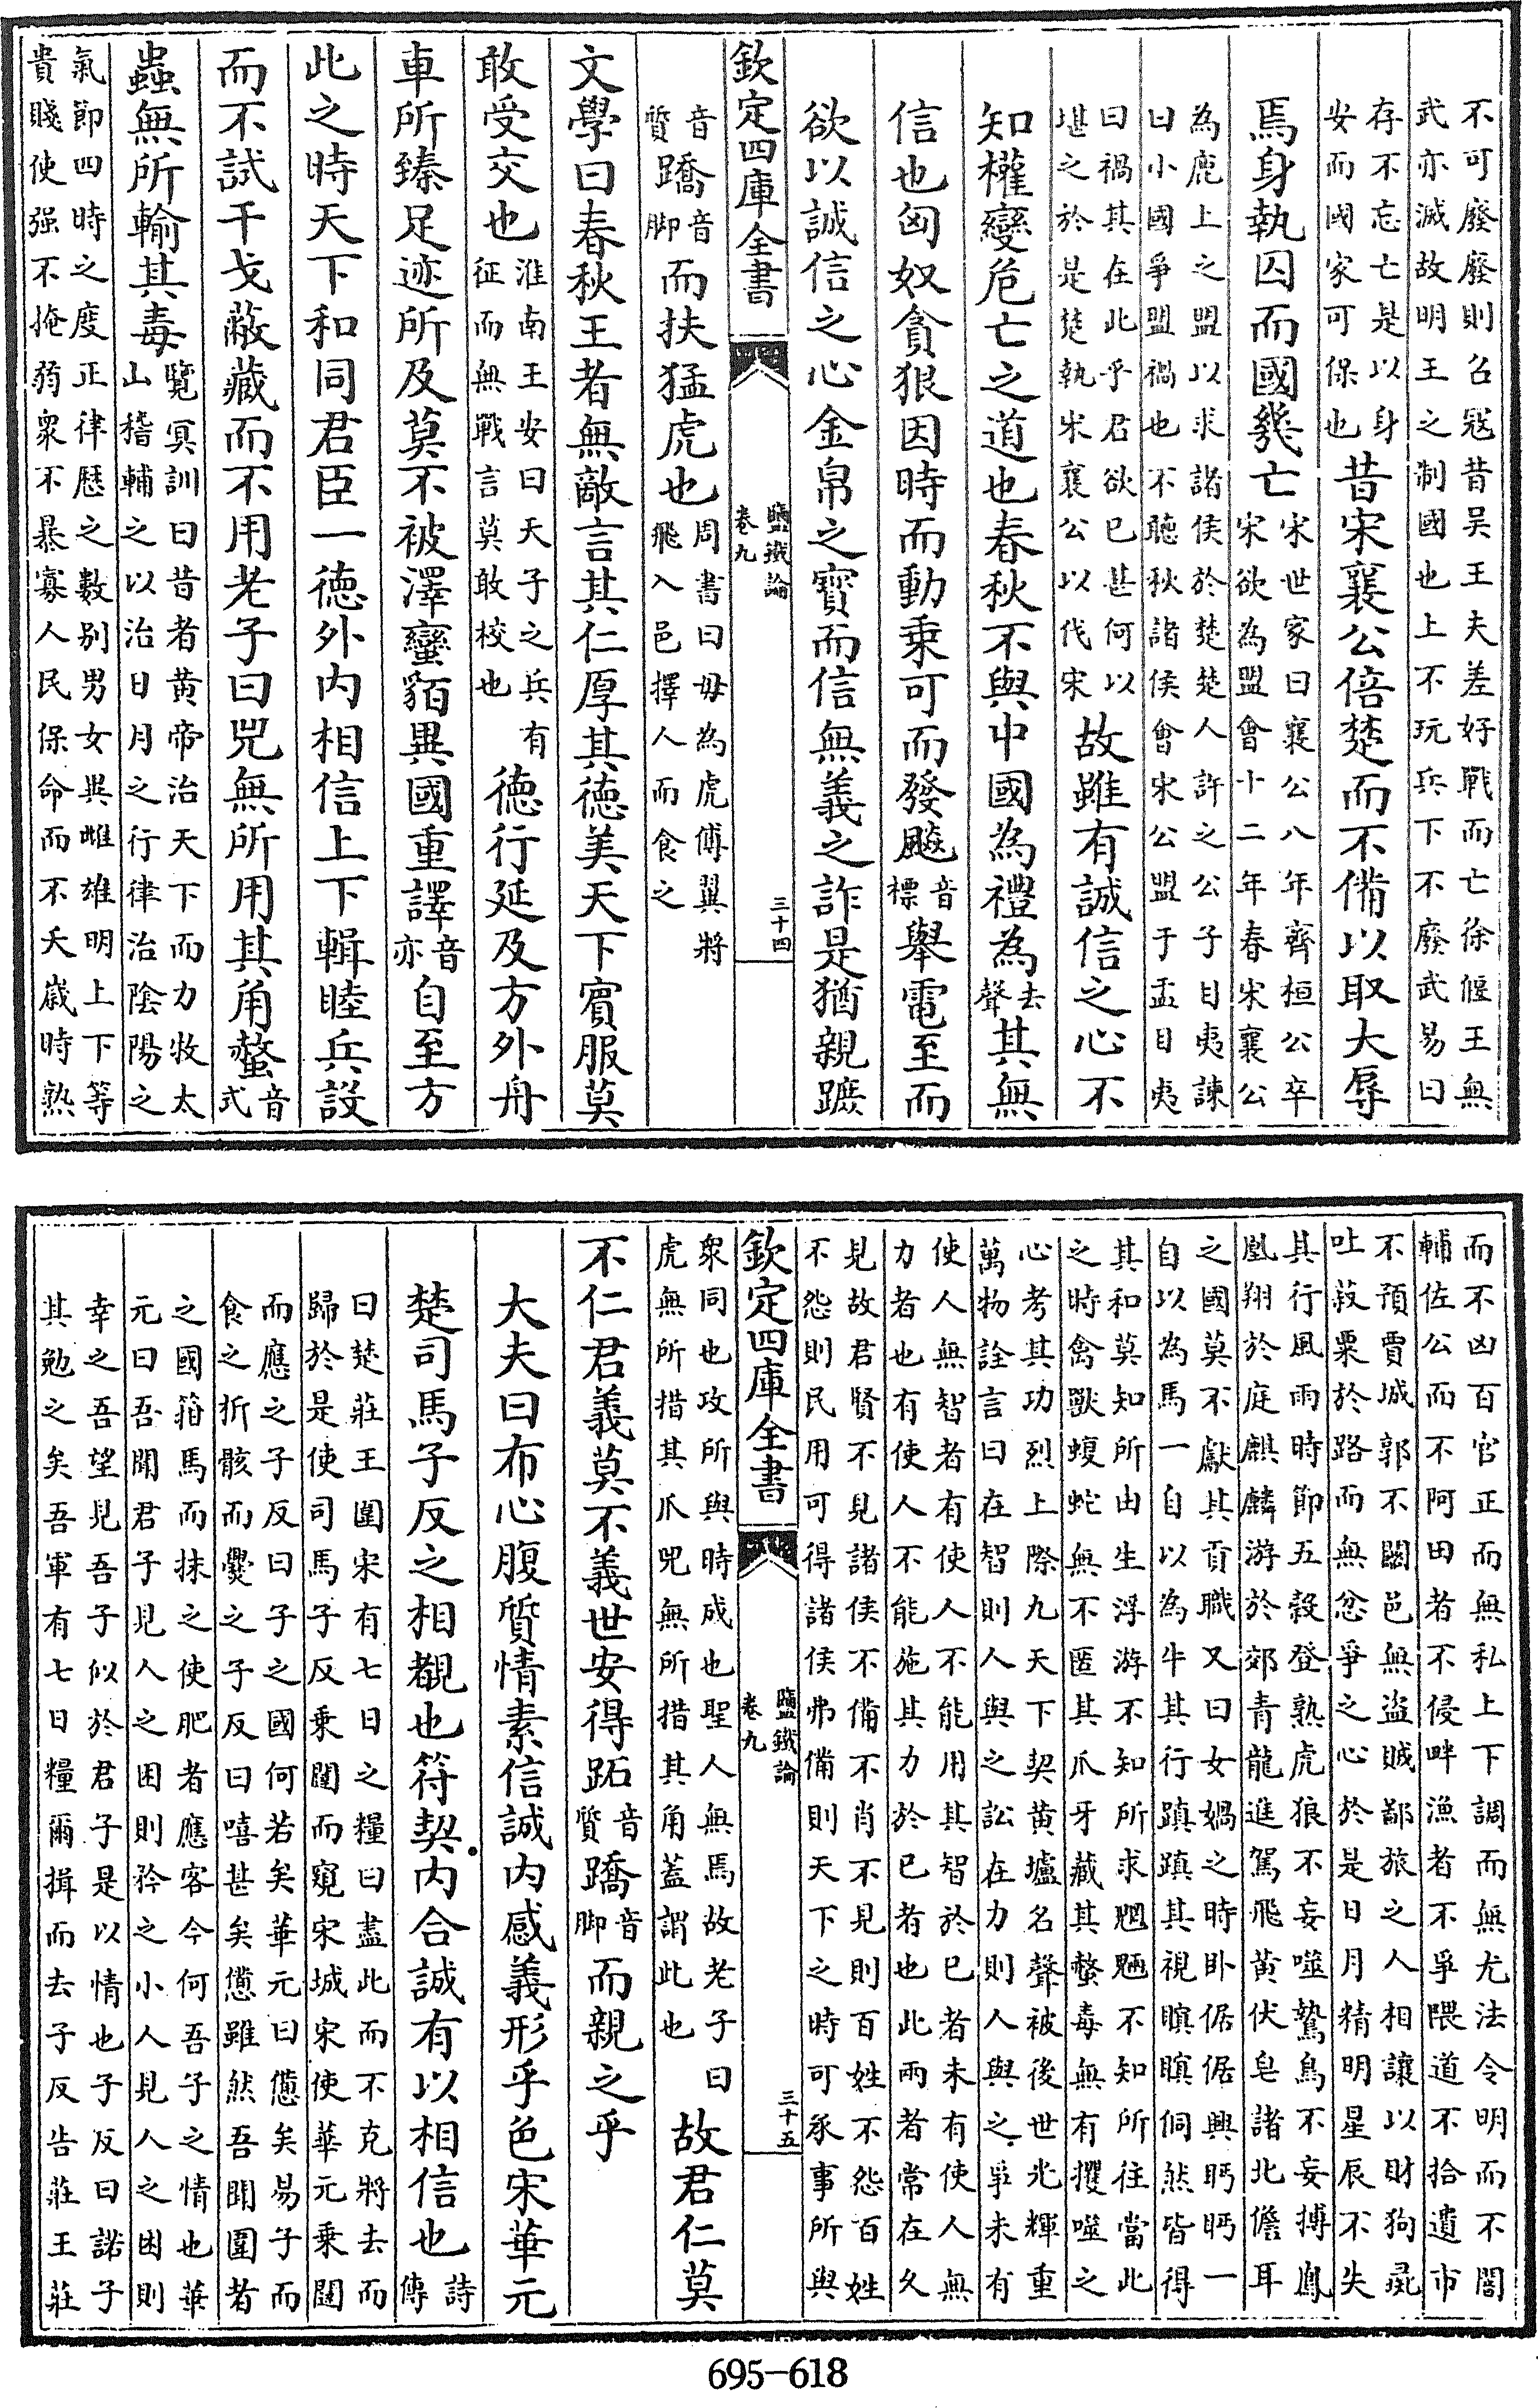 不可廢廢則召寇昔吴王夫差好戰而亡徐偃王無
武亦滅故明王之制國也上不玩兵下不廢武易曰
存不忘亡是以身
安而國家可保也
昔宋襄公倍楚而不備以取大辱
焉身執囚而國幾亡
宋世家曰襄公八年齊桓公卒
宋欲為盟會十二年春宋襄公
為鹿上之盟以求諸侯於楚楚人許之公子目夷諫
曰小國爭盟禍也不聽秋諸侯會宋公盟于盂目夷
曰禍其在此乎君欲已甚何以
堪之於是楚執宋襄公以伐宋
故雖有誠信之心不
知權變危亡之道也春秋不與中國為禮為
去
聲
其無
信也匈奴貪狠因時而動乘可而發飈
音
標
舉電至而
欲以誠信之心金帛之寳而信無義之詐是猶親蹠
欽定四庫全書
鹽鐵論
卷九
三十四
音
質
蹻
音
脚
而扶猛虎也
周書曰毋為虎傅翼將
飛入邑擇人而食之
文學曰春秋王者無敵言其仁厚其徳美天下賓服莫
敢受交也
淮南王安曰天子之兵有
征而無戰言莫敢校也
徳行延及方外舟
車所臻足迹所及莫不被澤蠻貊異國重譯
音
亦
自至方
此之時天下和同君臣一徳外内相信上下輯睦兵設
而不試干戈蔽藏而不用老子曰兕無所用其角螫
音
式
蟲無所輸其毒
覽冥訓曰昔者黄帝治天下而力牧太
山稽輔之以治日月之行律治陰陽之
氣節四時之度正律歴之數别男女異雌雄明上下等
貴賤使强不掩弱衆不暴寡人民保命而不夭歳時熟
而不凶百官正而無私上下調而無尤法令明而不闇
輔佐公而不阿田者不侵畔漁者不爭隈道不拾遺市
不預賈城郭不闗邑無盗賊鄙旅之人相讓以財狗彘
吐菽粟於路而無忿爭之心於是日月精明星辰不失
其行風雨時節五穀登熟虎狼不妄噬鷙鳥不妄搏鳳
凰翔於庭麒麟游於郊青龍進駕飛黄伏皂諸北儋耳
之國莫不獻其貢職又曰女媧之時卧倨倨興眄眄一
自以為馬一自以為牛其行蹎蹎其視瞑瞑侗然皆得
其和莫知所由生浮游不知所求魍魎不知所往當此
之時禽獸蝮蛇無不匿其爪牙藏其螫毒無有攫噬之
心考其功烈上際九天下契黄壚名聲被後世光輝重
萬物詮言曰在智則人與之訟在力則人與之爭未有
使人無智者有使人不能用其智於已者未有使人無
力者也有使人不能施其力於已者也此兩者常在久
見故君賢不見諸侯不備不肖不見則百姓不怨百姓
不怨則民用可得諸侯弗備則天下之時可承事所與
欽定四庫全書
鹽鐵論
卷九
三十五
衆同也攻所與時成也聖人無焉故老子曰
虎無所措其爪兕無所措其角蓋謂此也
故君仁莫
不仁君義莫不義世安得跖
音
質
蹻
音
脚
而親之乎
大夫曰布心腹質情素信誠内感義形乎色宋華元
楚司馬子反之相覩也符契内合誠有以相信也
詩
傳
曰楚莊王圍宋有七日之糧曰盡此而不克將去而
歸於是使司馬子反乘闉而窺宋城宋使華元乘闉
而應之子反曰子之國何若矣華元曰憊矣易子而
食之折骸而㸑之子反曰嘻甚矣憊雖然吾聞圍者
之國箝馬而抹之使肥者應客今何吾子之情也華
元曰吾聞君子見人之困則矜之小人見人之困則
幸之吾望見吾子似於君子是以情也子反曰諾子
其勉之矣吾軍有七日糧爾揖而去子反告莊王莊
695-618